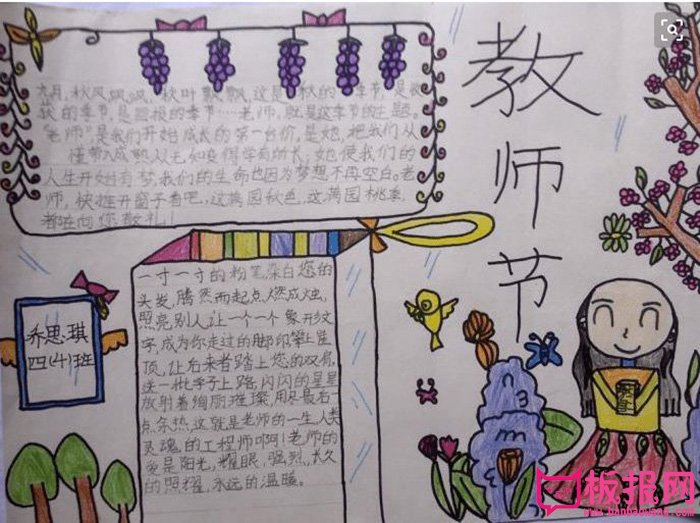 教师节
九月,秋风飒飒,秋叶飘飘,这是秋的季节,是收
获的季节,是回报的季节……老师,就是这季节的主题。
"老师"是我们开始成长的第一台价,是她,把我们从
懂带入成熟从无知变得学有所长;她使我们的
人生开始有梦,我们的生命也因为梦想不再空白。老
师,快推开窗子看吧,这满园秋色,这满园桃李,
都在向您敬礼!
一寸一寸的粉笔染白您的
头发,腾然而起点燃成烛,
照亮别人让一个一个象形文
字,成为你走过的脚印攀上崖
顶,让后来者踏上您的双肩,
送一批学子上路,闪闪的星星
放射着绚丽璀璨,用尽最后
点余热,这就是老师的一生人类
灵魂的工程师啊!老师的
爱是阳光,耀眼,强烈,长久
的照耀,永远的温暖。
乔思琪
四(4)班
板报网
www.banbaowang.com